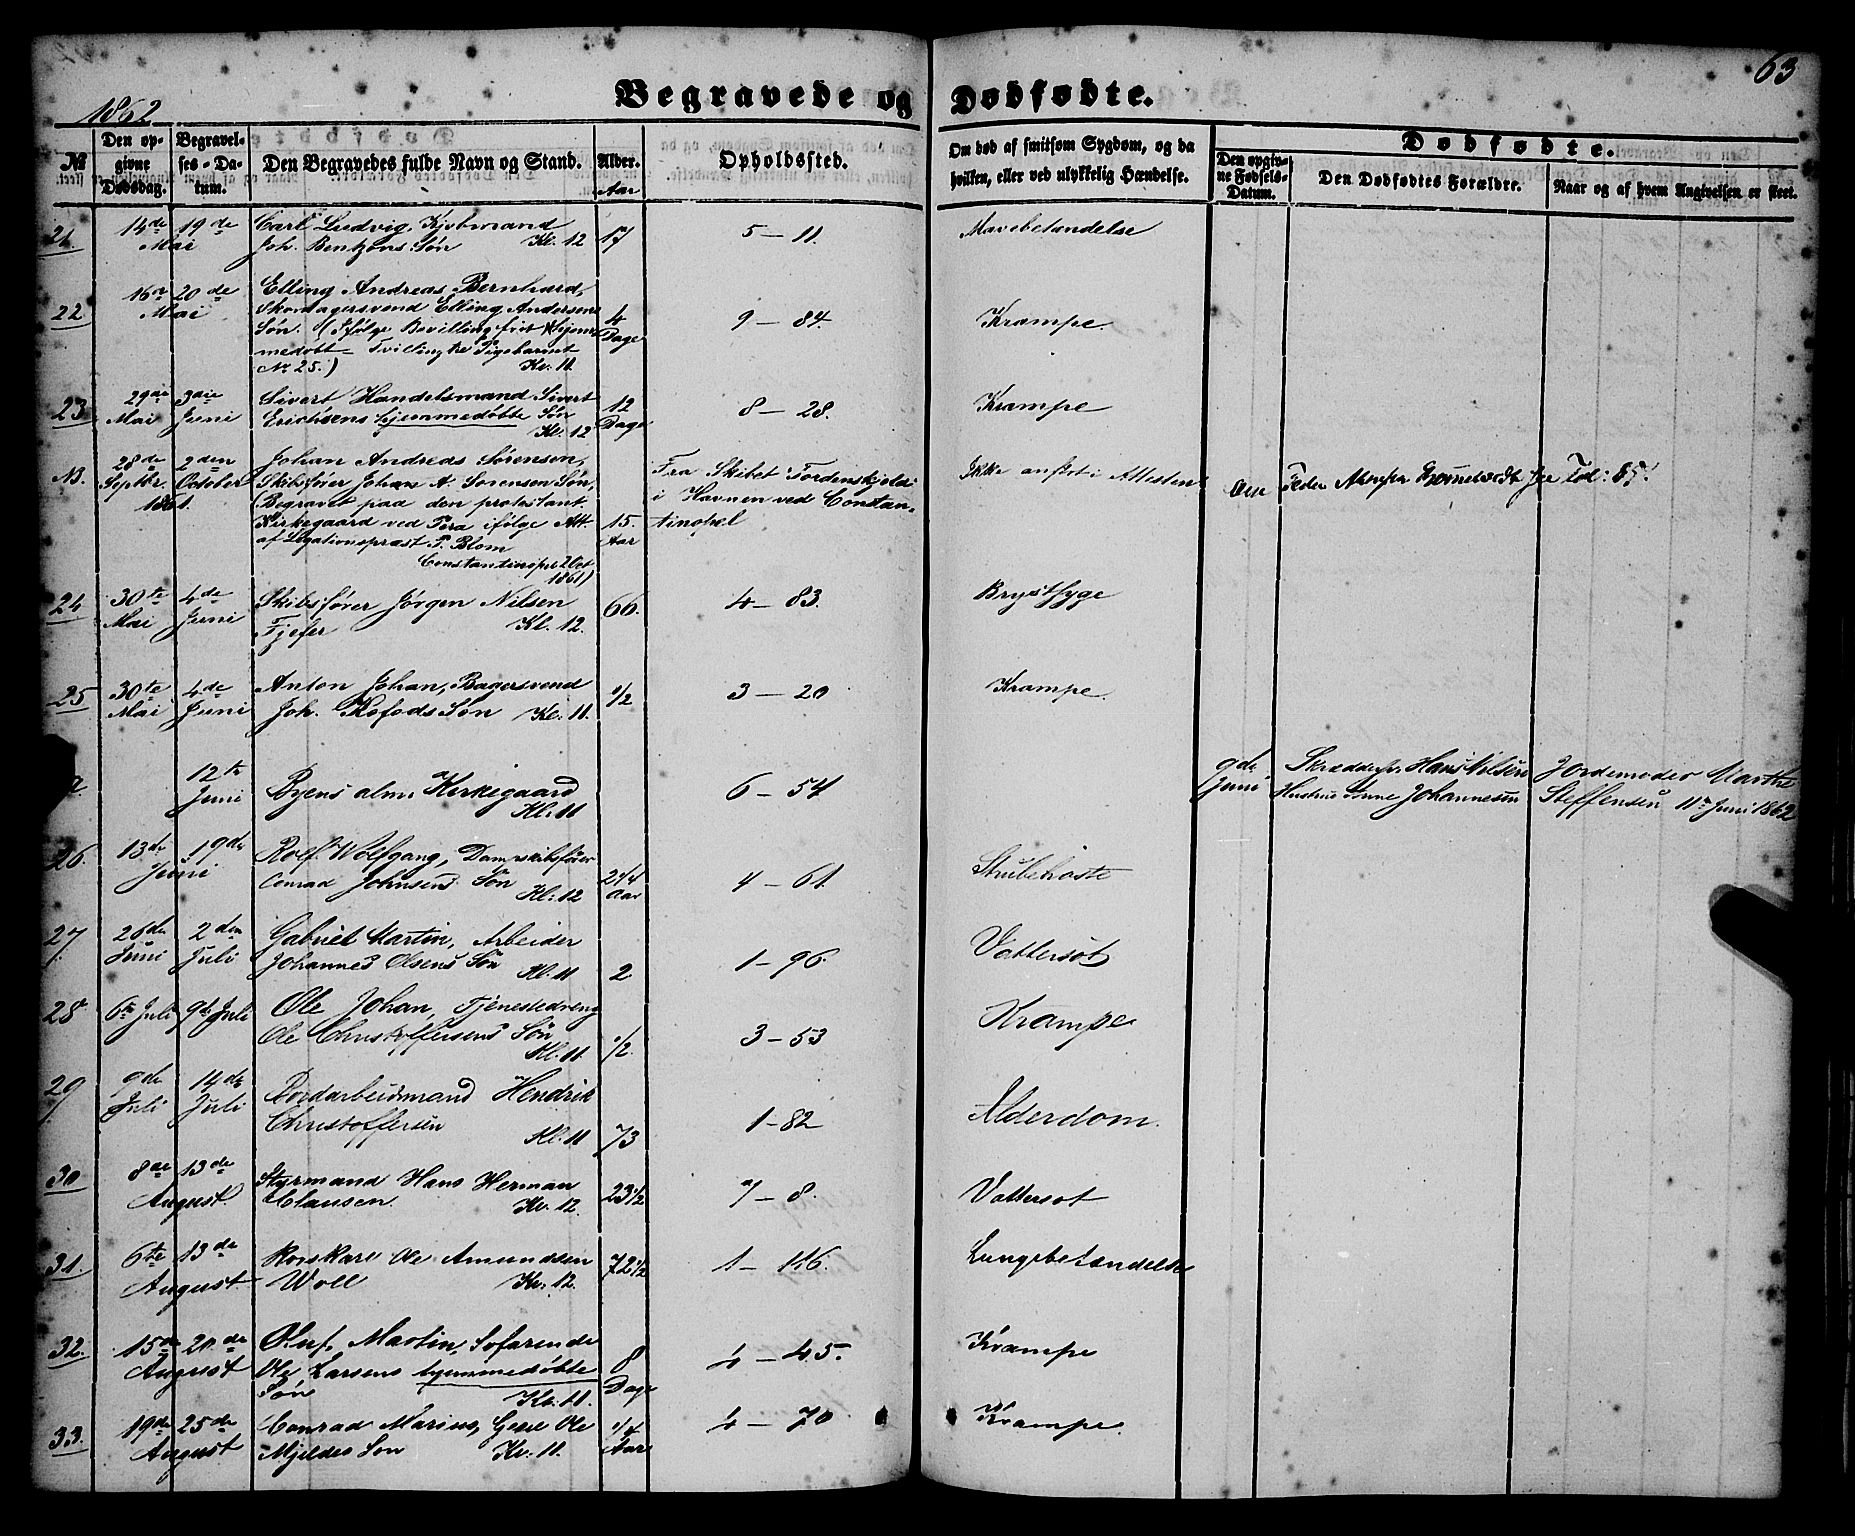 63
1862
Begravede og Dødfødte.
№
Den opgivne Dødsdag.
Begravelses-Datum.
Den Begravedes fulde Navn og Stand.
Alder.
Aar
Opholdssted.
Om død af smitsom Sygdom, og da hvilken, eller ved ulykkelig Hændelse.
Dødfødte.
Den opgivne Fødsels-Datum.
Den Dødfødtes Forældre.
Naar og af hvem Angivelsen er skeet.
21 14de 19de Carl Ludvig, Kjøbmand 17 5 – 11. Mavebetændelse
Mai Joh. Bentzons Søn Kl. 12
22 16de 20de Elling Andreas Bernhard, 4 Dage 9 – 84. Krampe
Mai Skomagersvend Elling Andersens
Søn. (Ifølge Bevilling frit hjem-
medøbt – Tvilling til Pigebarnet
Nr 25.) Kl. 11
23 29de 3die Sivert Handelsmand Sivert 12 Dage 8 – 28. Krampe
Mai Juni Erichsens hjemmedøbte Søn
Kl. 12
N. 28de 2den Johan Andreas Sørensen, Fra Skibet Tordenskjold Ikke anført i Attesten
Septbr. October Skibsfører Johan A. Sørensens Søn, i Havnen ved Constan-
1861. (Begravet paa den protestant. tinopel
Kirkegaard ved Pera ifølge Att. 15. Aar
af Legationspræst P. Blom
Constantinopel 2 Oct
1861)
Peder
24 30te 4de Skibsfører Jørgen Nilsen 66. 4 – 83. Brystsyge
Mai Juni Fjefer Kl. 12.
25 30te 4de Anton Johan, Bagersvend 1/2 3 – 20 Krampe
Mai Juni Joh. Kofods Søn Kl. 11
12te Byens alm. Kirkegaard 6 – 54 9de Hans Nilsen Jordemoder Marthe
Juni Kl. 11 Juni Hustrue Anne Johannesen Steffensen 11te Juni 1862
26. 13de 19de Rolf Wolfgang, Dampskibsfører 2 1/4 Aar 4 – 61. Strubehoste
Juni Conrad Johnsens Søn Kl. 12
27 26de 2den Gabriel Martin, Arbeider 2 1 – 96. Vattersot
Juni Juli Johannes Olsens Søn Kl. 11
28 6te Juli 9de Juli Ole Johan, Tjenestedreng 1/2 3 – 53 Krampe
Ole Christoffersens Søn Kl. 11.
29 9de 14de Hendrik 73 1 – 82 Alderdom.
Juli Juli Christoffersen Kl. 11
30 8de 13de Styrmand Hans Herman 23 1/2 7 – 8. Vattersot
August Clausen. Kl. 12.
31. 6te 13de Ole Amundsen 72 1/2 Lungebetændelse
August. Woll Kl. 12.
32. 15de 20de Oluf Martin, Søfarende 8 Dage 4 – 45. Krampe
August Ole Larsens hjemmedøbte
Søn Kl. 11.
33. 19de 25de Conrad Marius, Ole 1/4 Aar 4 – 70 Krampe.
August Mjeldes Søn Kl. 11.